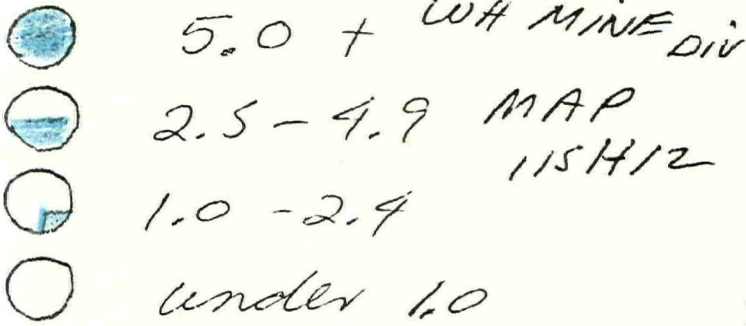 5.0 + WH MINE DIV
2.5 - 4.9 MAP
115H12
1.0 - 2.4
under 1.0